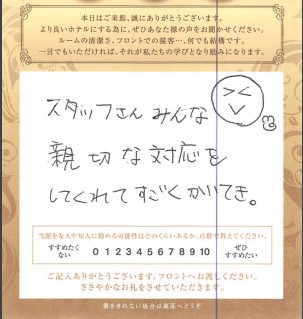 本日はご来館、誠にありがとうございます。
より良いホテルにする為に、ぜひあなた様の声をお聞かせください。
ルームの清潔さ、フロントでの接客…、何でも結構です。
一言でもいただければ、それが私たちの学びとなり励みになります。
スタッフさん みんな
親切な対応を
してくれてすごくかいてき。
当館を友人や知人に勧める可能性はどのくらいあるか、点数で教えてください。
すすめたく
ない
0 1 2 3 4 5 6 7 8 9 10
ぜひ
すすめたい
ご記入ありがとうございます。フロントへお渡しください。
ささやかなお礼をさせていただきます。
書ききれない場合は裏面へどうぞ